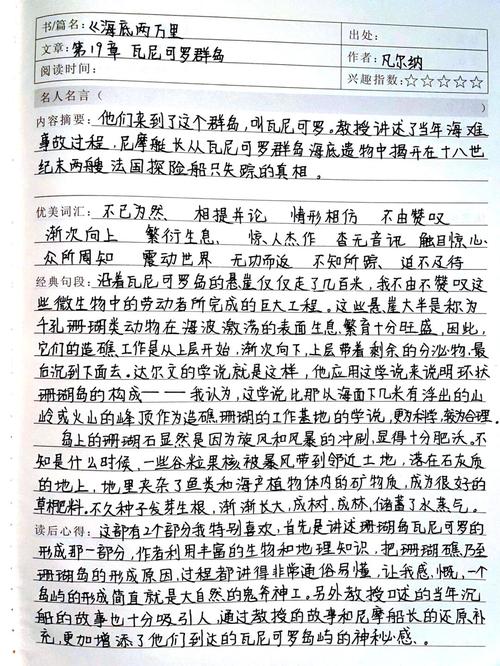 书/篇名：《海底两万里
出处：
文章：第19章 瓦尼可罗群岛
作者：凡尔纳
阅读时间：
兴趣指数：☆☆☆☆☆
名人名言（ ）
内容摘要：他们来到了这个群岛，叫瓦尼可罗。教授讲述了当年海难
事故过程，尼摩艇长从瓦尼可罗群岛海底遗物中揭开在十八世
纪末两艘法国探险船只失踪的真相。
优美词汇：不已为然 相提并论 情形相仿 不由赞叹
渐次向上 繁衍生息、 惊人杰作 杳无音讯 触目惊心、
众所周知 震动世界 无功而返 不知所踪、 迫不及待
经典句段：沿着瓦尼可罗岛的悬崖仅仅走了几百米，我不由不赞叹这
些微生物中的劳动者所完成的巨大工程。这些悬崖大半是称为
千孔珊瑚类动物在海波激荡的表面生息，繁育十分旺盛，因此，
它们的造礁工作是从上层开始，渐次向下，上层带着剩余的分泌物，最
后沉到下面去。达尔文的学说就是这样，他应用这学说来说明环状
珊瑚岛的构成——我认为，这学说比那从海面下几米有浮出的山
岭或火山的峰顶作为造礁珊瑚的工作基地的学说，更为科学，较为合理。
岛上的珊瑚石显然是因为旋风和风暴的冲刷，显得十分肥沃。不
知是什么时候，一些谷粒果核被暴风带到邻近土地，落在石灰质
的地上，地里夹杂了鱼类和海产植物体内的矿物质，成为很好的
草肥料，不久种子发芽生根，渐渐长大，成树，成林，储蓄了水蒸气。
读后心得：这部有2个部分我特别喜欢，首先是讲述珊瑚岛瓦尼可罗的
形成那一部分，作者利用丰富的生物和地理知识，把珊瑚礁乃至
珊瑚岛的形成原因，过程都讲得非常通俗易懂，让我感慨，一个
岛屿的形成简直就是大自然的鬼斧神工。另外教授口述的当年沉
船的故事也十分吸引人，通过教授的故事和尼摩船长的还原补
充，更加增添了他们到达的瓦尼可罗岛屿的神秘感、。